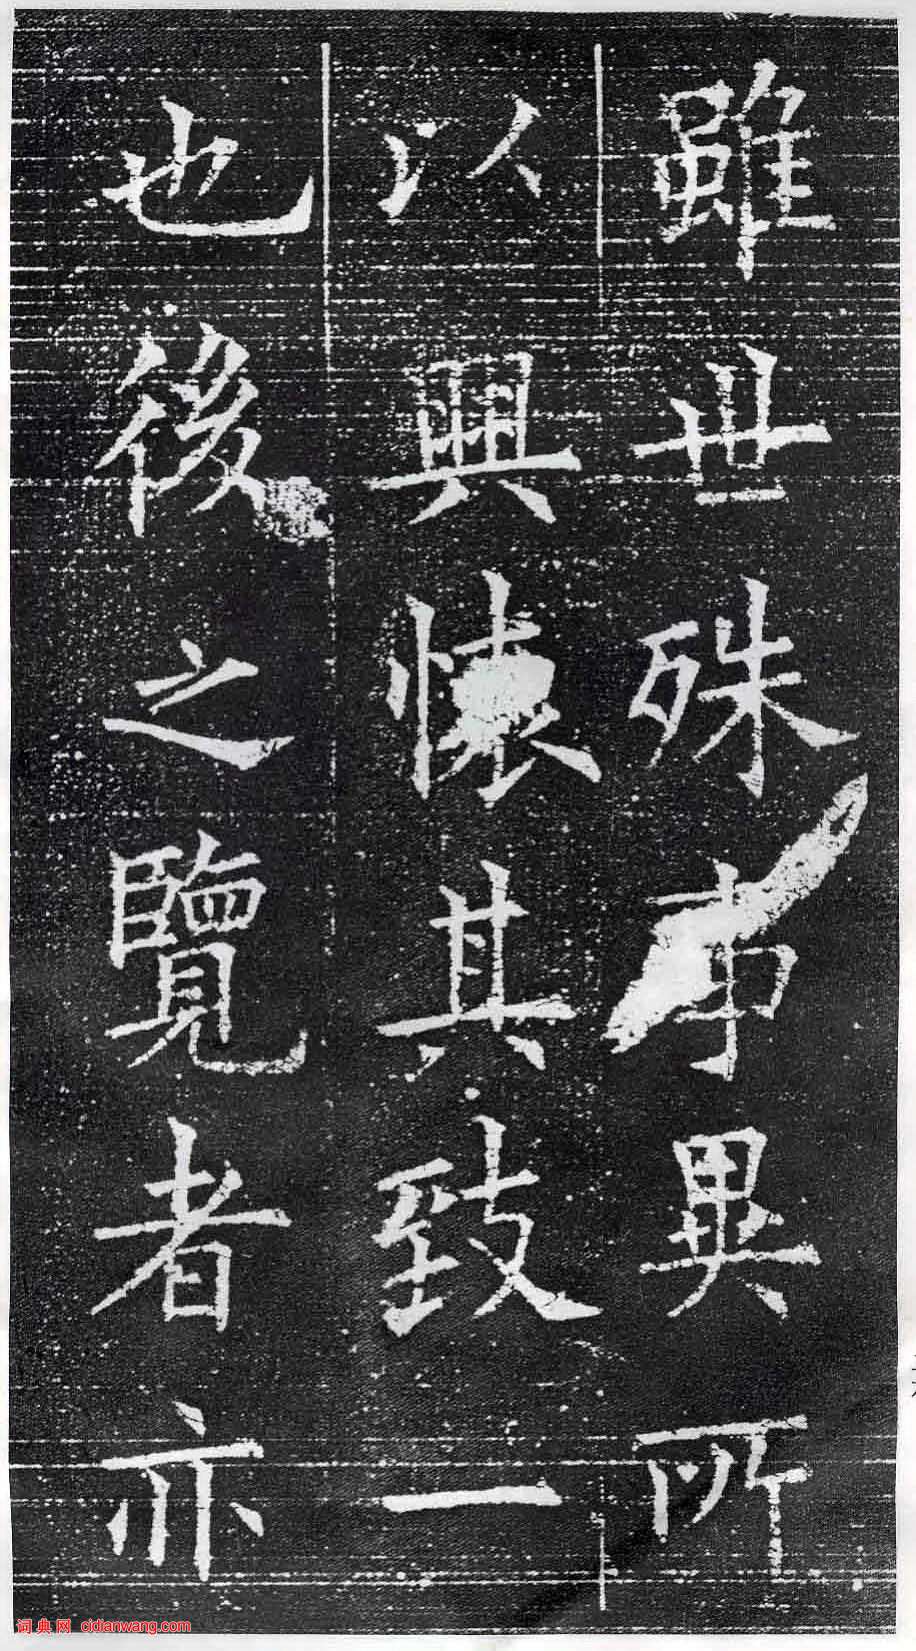 雖世殊事異所
以興懐其致一
也後之覽者亦
词典网 cidianwang.com